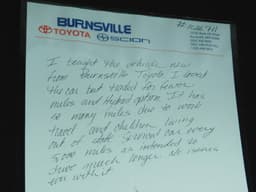 BURNSVILLE
TOYOTA SCION
I bought this vehicle new
from Burnsville Toyota. I loved
the car but traded for fewer
miles and Hybrid option. It has
so many miles due to work
travel and children living
out of state. Serviced car every
5,000 miles as intended to
have much longer. No issues
ever with it.